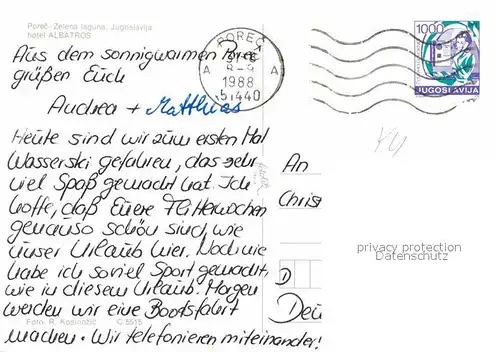 Poreč-Zelena laguna, Jugoslavija
hotel ALBATROS
Aus dem sonnigwarmen Poreč
grüßen Euch
Andrea + Matthias
Heute sind wir zum ersten Mal
Wasserski gefahren, das sehr
viel Spaß gemacht hat. Ich
hoffe, daß Euere Flitterwochen
genauso schön sind, wie
unser Urlaub hier. Noch nie
habe ich soviel Sport gemacht,
wie in diesem Urlaub. Morgen
werden wir eine Bootsfahrt
machen. Wir telefonieren miteinander!
Foto: R. Kosinožić C 5515
POREČ
A A
8-9
1988
51440
1000
JUGOSLAVIJA
YU
An
Chris
D
Deu
privacy protection
Datenschutz